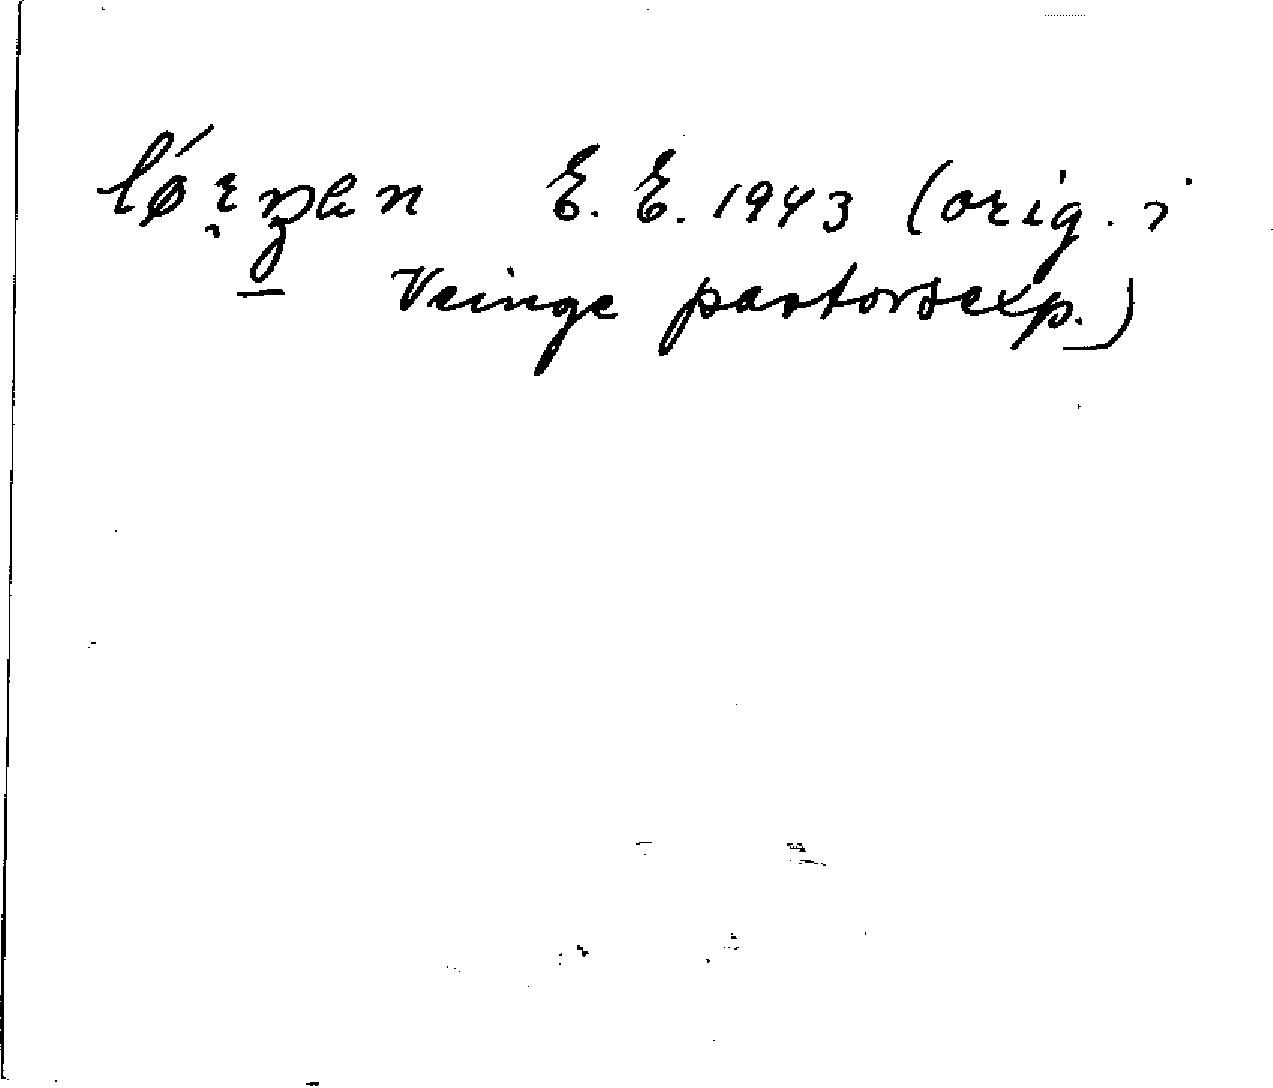 E. E. 1943 (orig. i
Veinge pastorsexp.)